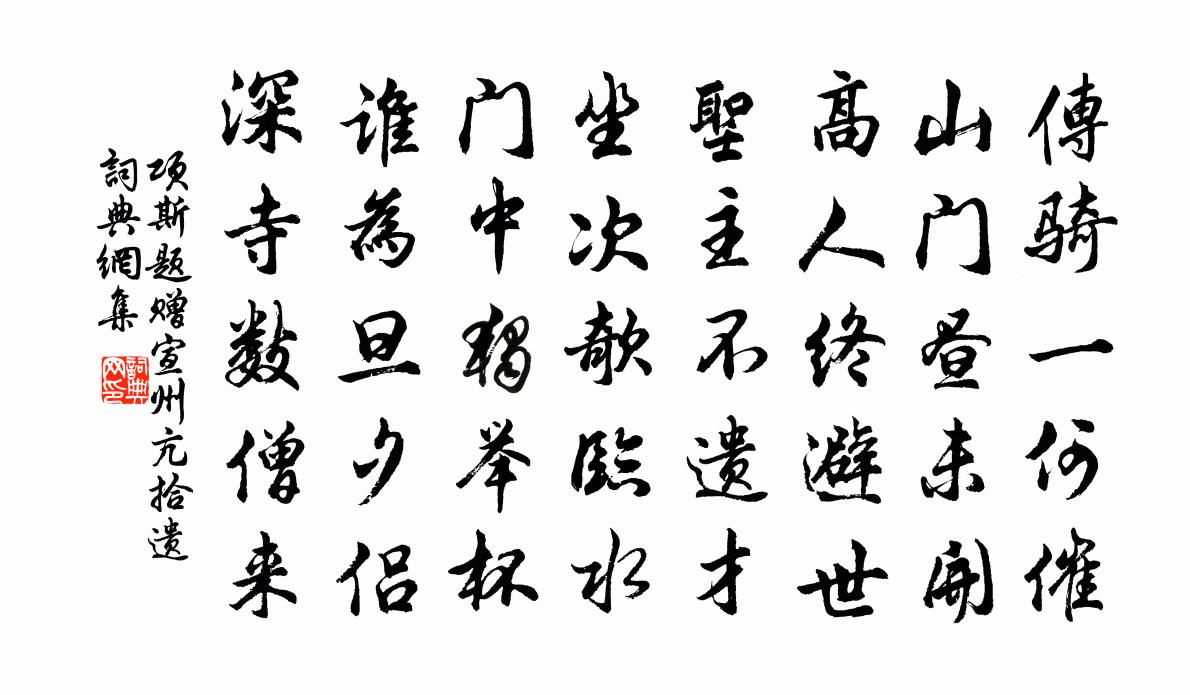 傳骑一何催
山门昼未開
高人终避世
聖主不遗才
坐次欹臨水
门中獨举杯
谁為旦夕侣
深寺数僧来
项斯题赠宣州亢拾遗
詞典網集
詞典网印